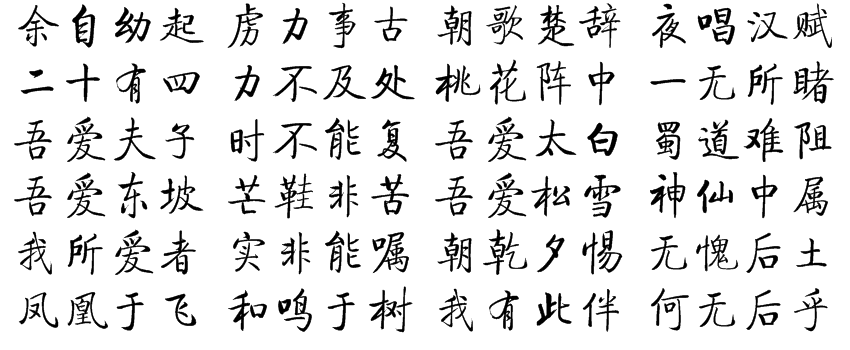 余自幼起 虏力事古 朝歌楚辞 夜唱汉赋
二十有四 力不及处 桃花阵中 一无所睹
吾爱夫子 时不能复 吾爱太白 蜀道难阻
吾爱东坡 芒鞋非苦 吾爱松雪 神仙中属
我所爱者 实非能嘱 朝乾夕惕 无愧后土
凤凰于飞 和鸣于树 我有此伴 何无后乎